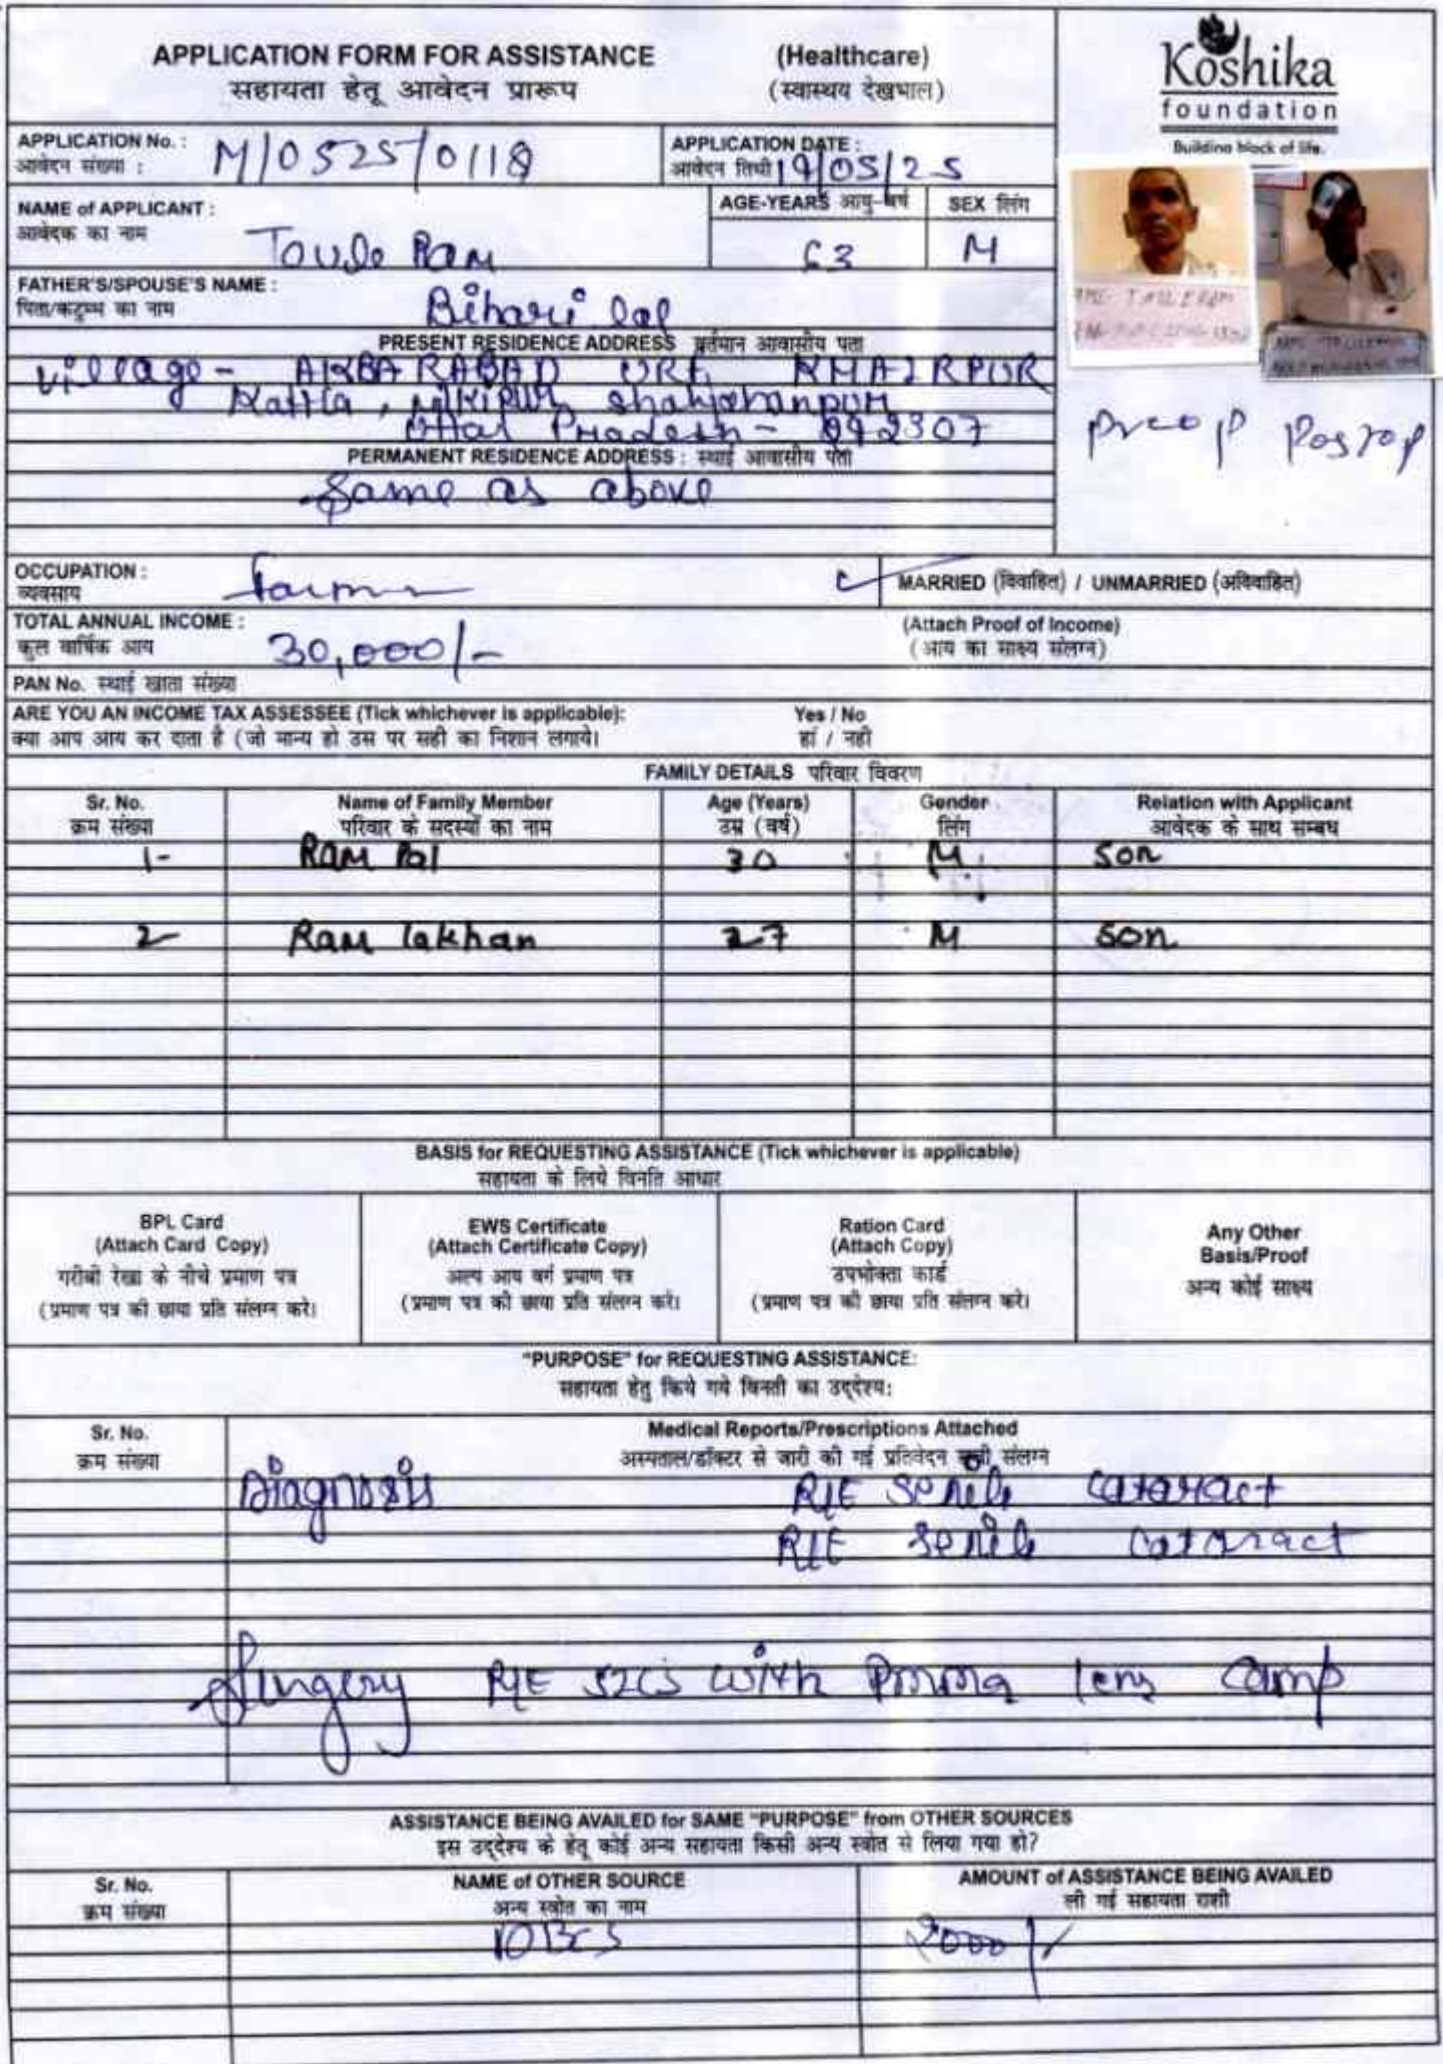 APPLICATION FORM FOR ASSISTANCE (Healthcare)
सहायता हेतू आवेदन प्रारूप (स्वास्थय देखभाल)
Koshika
foundation
Building block of life.
APPLICATION No. : M/0525/0118
आवेदन संख्या :
APPLICATION DATE :
आवेदन तिथी 19/05/25
NAME of APPLICANT :
आवेदक का नाम
Toule Ram
AGE-YEARS आयु-वर्ष
63
SEX लिंग
M
FATHER'S/SPOUSE'S NAME :
पिता/कटुम्भ का नाम
Bihari lal
PRESENT RESIDENCE ADDRESS वर्तमान आवासीय पता
village - AKBARABAD URF KHAIRPUR
Kattia, Shahjahanpur
Uttar Pradesh - 242307
PERMANENT RESIDENCE ADDRESS : स्थाई आवासीय पता
Same as above
Preop Postop
OCCUPATION :
व्यवसाय
Farmer
MARRIED (विवाहित) / UNMARRIED (अविवाहित)
TOTAL ANNUAL INCOME :
कुल वार्षिक आय
30,000/-
(Attach Proof of Income)
(आय का साक्ष्य संलग्न)
PAN No. स्थाई खाता संख्या
ARE YOU AN INCOME TAX ASSESSEE (Tick whichever is applicable): Yes / No
क्या आप आय कर दाता है (जो मान्य हो उस पर सही का निशान लगाये। हां / नही
FAMILY DETAILS परिवार विवरण
Sr. No. Name of Family Member Age (Years) Gender Relation with Applicant
क्रम संख्या परिवार के सदस्यों का नाम उम्र (वर्ष) लिंग आवेदक के साथ सम्बध
1- Ram Pal 30 M son
2 Ram lakhan 27 M son
BASIS for REQUESTING ASSISTANCE (Tick whichever is applicable)
सहायता के लिये विनति आधार
BPL Card
(Attach Card Copy)
गरीबी रेखा के नीचे प्रमाण पत्र
(प्रमाण पत्र की छाया प्रति संलग्न करे।
EWS Certificate
(Attach Certificate Copy)
अल्प आय वर्ग प्रमाण पत्र
(प्रमाण पत्र की छाया प्रति संलग्न करे।
Ration Card
(Attach Copy)
उपभोक्ता कार्ड
(प्रमाण पत्र की छाया प्रति संलग्न करे।
Any Other
Basis/Proof
अन्य कोई साक्ष्य
"PURPOSE" for REQUESTING ASSISTANCE:
सहायता हेतु किये गये विनती का उद्देश्य:
Sr. No. Medical Reports/Prescriptions Attached
क्रम संख्या अस्पताल/डॉक्टर से जारी की गई प्रतिवेदन सूची संलग्न
Diagnosis R/E Senile cataract
R/E Senile cataract
Surgery R/E SICS with Pmma lens camp
ASSISTANCE BEING AVAILED for SAME "PURPOSE" from OTHER SOURCES
इस उद्देश्य के हेतू कोई अन्य सहायता किसी अन्य स्त्रोत से लिया गया हो?
Sr. No. NAME of OTHER SOURCE AMOUNT of ASSISTANCE BEING AVAILED
क्रम संख्या अन्य स्त्रोत का नाम ली गई सहायता राशी
2000/-